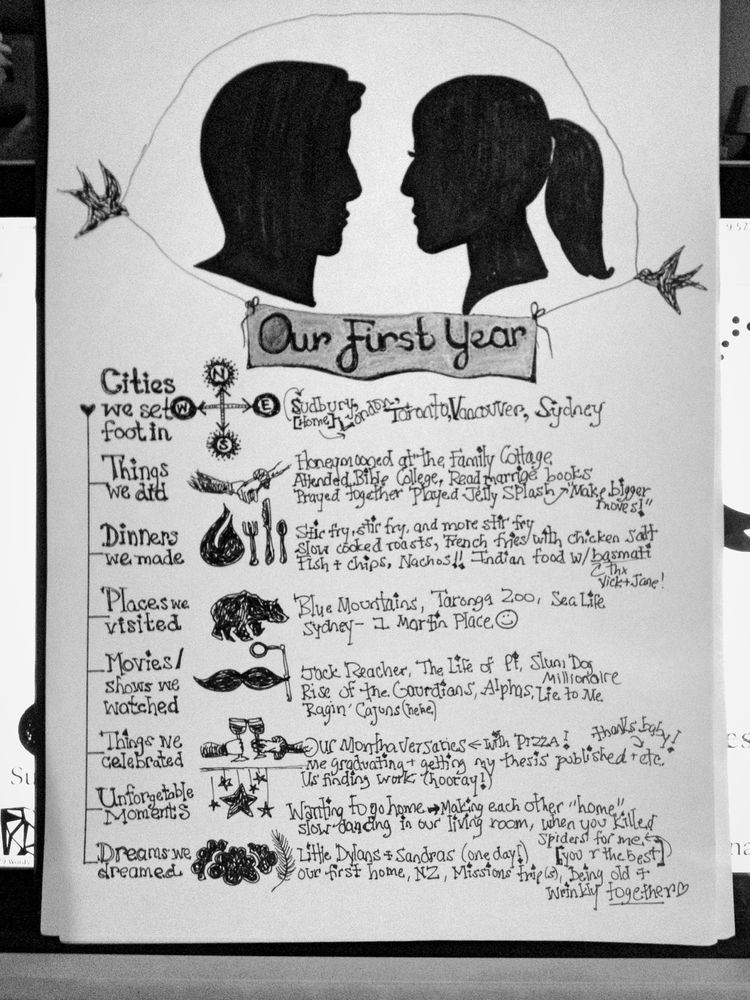 Our First Year
Cities
we set
foot in
N
W
E
S
(Sudbury, London, Toronto, Vancouver, Sydney
[Home]
Things
we did
Honeymooned at the Family Cottage
Attended Bible College, Read marrige books
Prayed together Played Jelly Splash "Make bigger
moves!"
Dinners
we made
Stir fry, stir fry, and more stir fry
Slow cooked roasts, French fries with chicken salt
Fish + chips, Nachos!! Indian food w/ basmati
Thx
Vick + Jane!
Places we
visited
Blue Mountains, Taronga Zoo, Sea Life
Sydney - 1 Martin Place
Movies/
shows we
watched
Jack Reacher, The Life of Pi, Slum Dog
Millionaire
Rise of the Gaurdians, Alphas, Lie to Me
Ragin' Cajuns (hehe)
Things we
celebrated
Our Monthaversaries with PIZZA!
thanks baby!
me graduating + getting my thesis published + etc.
Us finding work (hooray!)
Unforgetable
Moments
Wanting to go home Making each other "home"
slow dancing in our living room, when you killed
spiders for me
[you r the best]
Dreams we
dreamed
Little Dylans + Sandras (one day!)
our first home, NZ, Missions trip(s), Being old +
wrinkly together